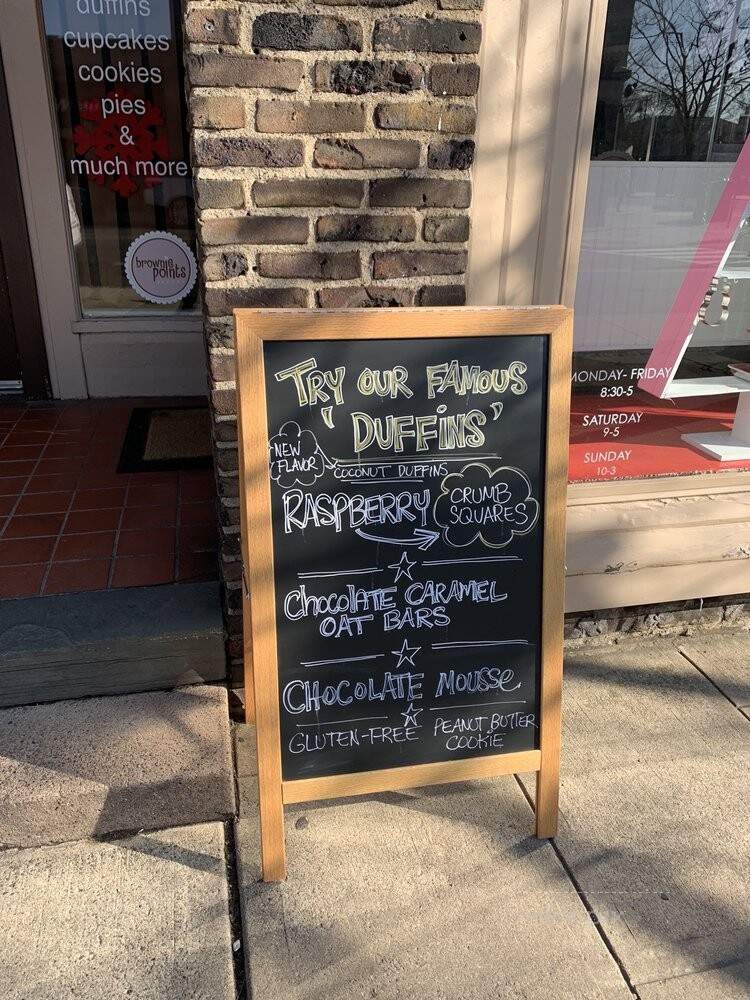 duffins
cupcakes
cookies
pies
&
much more
brownie
points
TRY OUR FAMOUS
'DUFFiNS'
NEW
FLAVOR
COCONUT DUFFINS
RASPBERRY
CRUMB
SQUARES
ChocolATE CARAMEL
OAT BARS
CHOCOLATE MOUSSe
GLUTEN-FREE
PEANUT BUTTER
COOKiE
MONDAY- FRIDAY
8:30-5
SATURDAY
9-5
SUNDAY
10-3